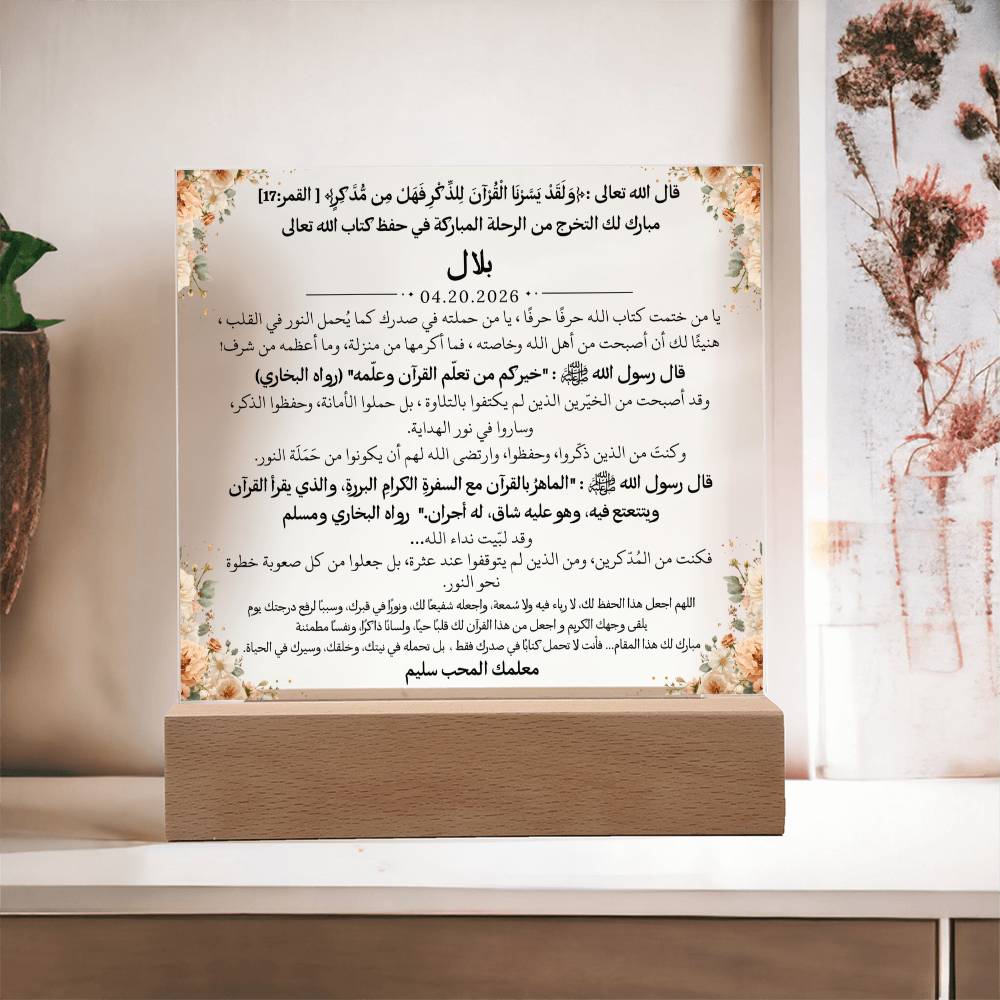 قال الله تعالى :﴿وَلَقَدْ يَسَّرْنَا الْقُرْآنَ لِلذِّكْرِ فَهَلْ مِن مُّدَّكِرٍ﴾ [ القمر:17]
مبارك لك التخرج من الرحلة المباركة في حفظ كتاب الله تعالى
بلال
04.20.2026
يا من ختمت كتاب الله حرفًا حرفًا ، يا من حملته في صدرك كما يُحمل النور في القلب ،
هنيئًا لك أن أصبحت من أهل الله وخاصته ، فما أكرمها من منزلة، وما أعظمه من شرف!
قال رسول الله ﷺ : "خيركم من تعلّم القرآن وعلّمه" (رواه البخاري)
وقد أصبحت من الخيّرين الذين لم يكتفوا بالتلاوة ، بل حملوا الأمانة، وحفظوا الذكر،
وساروا في نور الهداية.
وكنتَ من الذين ذَكّروا، وحفظوا، وارتضى الله لهم أن يكونوا من حَمَلَة النور.
قال رسول الله ﷺ : "الماهرُ بالقرآن مع السفرةِ الكرامِ البررةِ، والذي يقرأ القرآن
ويتتعتع فيه، وهو عليه شاق، له أجران." رواه البخاري ومسلم
وقد لبّيت نداء الله...
فكنت من المُدّكرين، ومن الذين لم يتوقفوا عند عثرة، بل جعلوا من كل صعوبة خطوة
نحو النور.
اللهم اجعل هذا الحفظ لك، لا رياء فيه ولا سُمعة، واجعله شفيعًا لك، ونورًا في قبرك، وسببًا لرفع درجتك يوم
يلقى وجهك الكريم و اجعل من هذا القرآن لك قلبًا حيًا، ولسانًا ذاكرًا، ونفسًا مطمئنة
مبارك لك هذا المقام... فأنت لا تحمل كتابًا في صدرك فقط ، بل تحمله في نيتك، وخلقك، وسيرك في الحياة.
معلمك المحب سليم